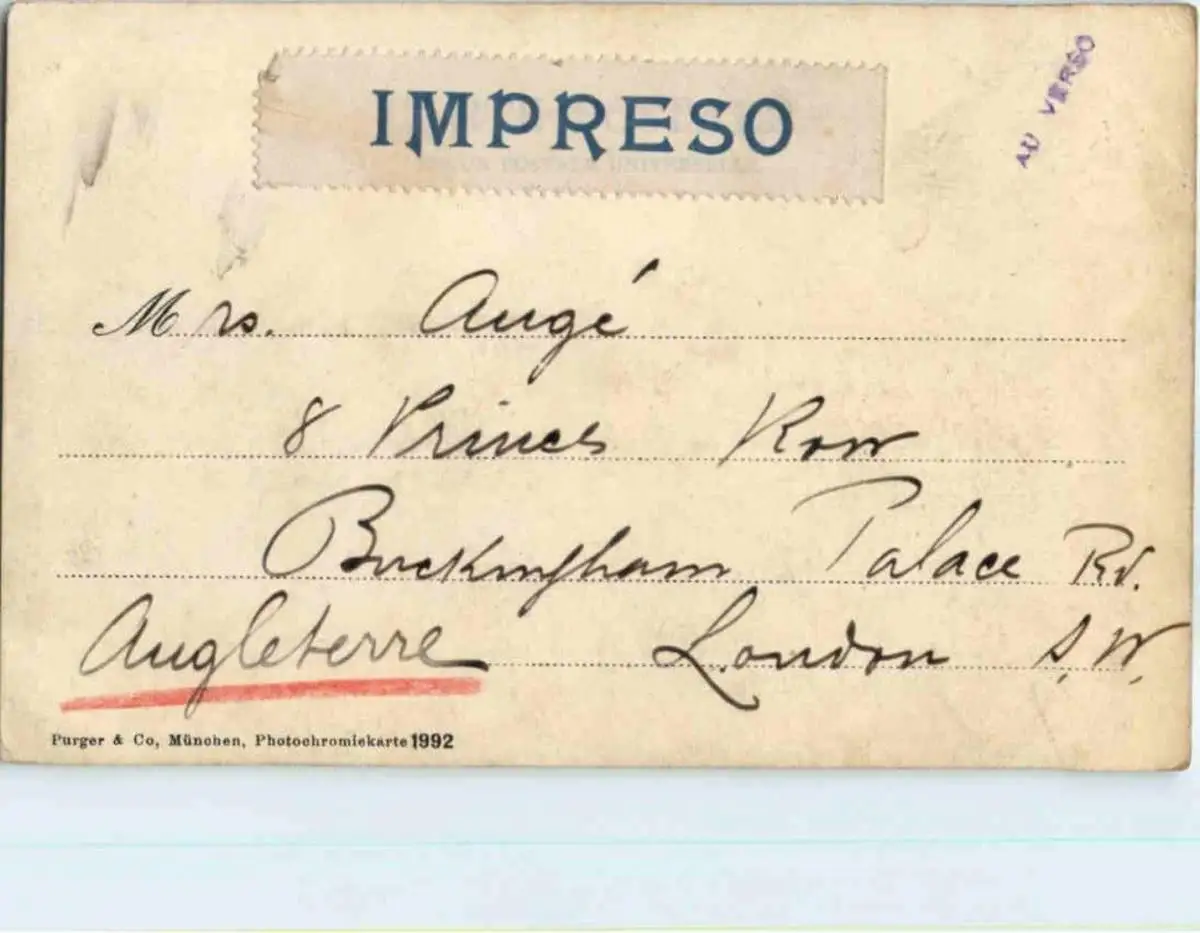 IMPRESO
AU VERSO
Mrs. Augé
8 Princes Row
Buckingham Palace Rd.
Angleterre London S.W.
Purger & Co, München, Photochromiekarte 1992